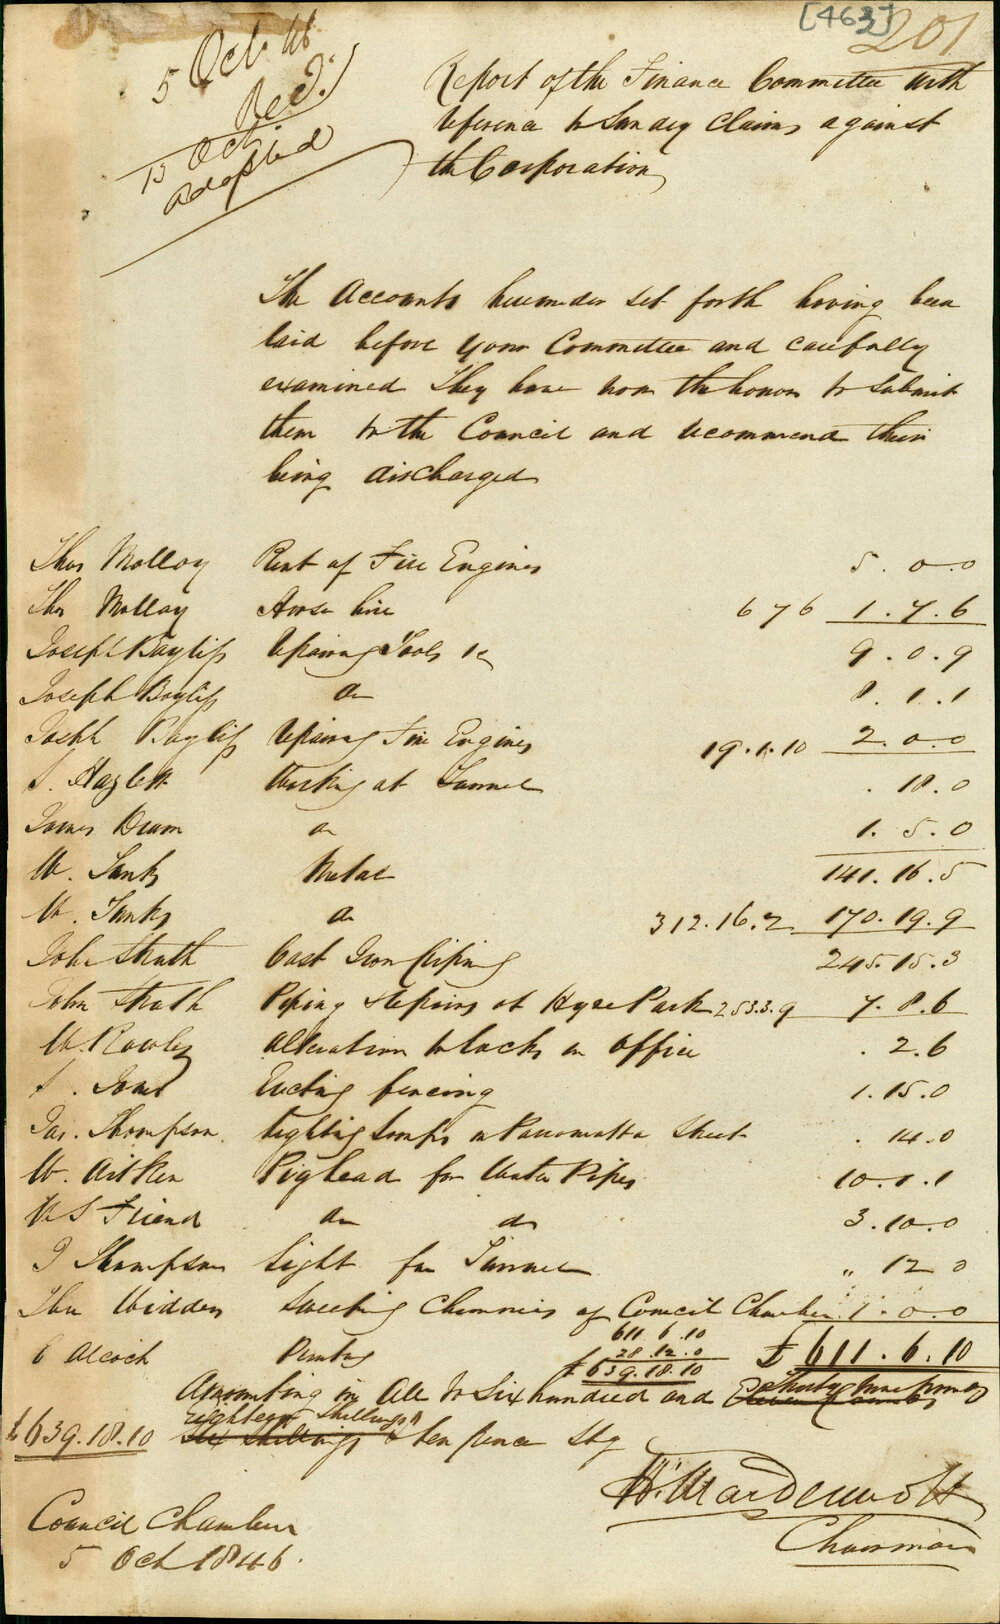 [463]
201
5 Oct 46
Recd.
15 Oct.
adopted
Report of the Finance Committee with
reference to Sundry Claims against
the Corporation
The Accounts hereunder set forth having been
laid before your Committee and carefully
examined They have now the honor to submit
them to the Council and recommend their
being discharged
Thos Molloy Rent of Fire Engines 5. 0. 0
Thos Molloy Horse hire 6 7 6 1. 7. 6
Joseph Bayliss Repairing Tools &c 9. 0. 9
Joseph Bayliss do 8. 1. 1
Joseph Bayliss Repairing Fire Engines 19. 1. 10 2. 0. 0
Hazlett Working at Tunnel . 18. 0
James do 1. 5. 0
W. Tunks Metal 141. 16. 5
W. Tunks do 312. 16. 2 170. 19. 9
John Struth Cast Iron piping 245. 15. 3
John Struth Piping & Repairs at Hyde Park 253.3.9 7. 8. 6
W. Rowley Alteration to locks in office . 2. 6
Jones Erecting fencing 1. 15. 0
Jas. Thompson lighting lamps in Parramatta Street . 14. 0
W. Aitken Pig lead for Water Pipes 10. 1. 1
W S Friend do do 3. 10. 0
J Thompson Light for Tunnel " 12 0
Widders Sweeping Chimnies of Council Chamber 1. 0. 0
611. 6. 10 £611. 6. 10
28. 12. 0
Alcock Printing £639. 18. 10
Thirty nine pounds
Amounting in All to Six hundred and Eleven Pounds
eighteen Shillings
£639. 18. 10 six shillings & ten pence Stg
Council Chamber
Chairman
5 Oct 1846.